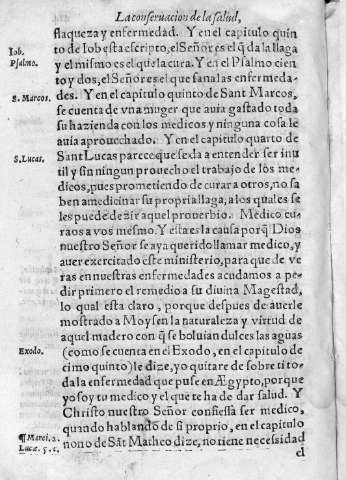 La conseruacion de la salud,
flaqueza y enfermedad. Y en el capitulo quin
to de Iob esta escripto, el Señor es el q̃ da la llaga
Iob.
y el mismo es el que la cura. Y en el Psalmo cien
Psalmo.
to y dos, el Señor es el que sana las enfermeda-
des. Y en el capitulo quinto de Sant Marcos,
S. Marcos.
se cuenta de vna muger que auia gastado toda
su hazienda con los medicos y ninguna cosa le
auia aprouechado. Y en el capitulo quarto de
Sant Lucas parece que se da a entender ser inu
S. Lucas.
til y sin ningun prouecho el trabajo de los me-
dicos, pues prometiendo de curar a otros, no sa
ben a medicinar su propria llaga, a los quales se
les puede dezir aquel prouerbio. Medico cu-
raos a vos mesmo. Y esta es la causa porq̃ Dios
nuestro Señor se aya querido llamar medico, y
auer exercitado este ministerio, para que de ve
ras en nuestras enfermedades acudamos a pe-
dir primero el remedio a su diuina Magestad,
lo qual esta claro, porque despues de auerle
mostrado a Moysen la naturaleza y virtud de
aquel madero con q̃ se boluian dulces las aguas
(como se cuenta en el Exodo, en el capitulo de
Exodo.
cimo quinto) le dize, yo quitare de sobre ti to-
da la enfermedad que puse en Ægypto, porque
yo soy tu medico y el que te ha de dar salud. Y
Christo nuestro Señor confiessa ser medico,
quando hablando de si proprio, en el capitulo
¶ Marci. 2.
nono de Sãt Matheo dize, no tiene necessidad
Lucæ. 5. c.
el